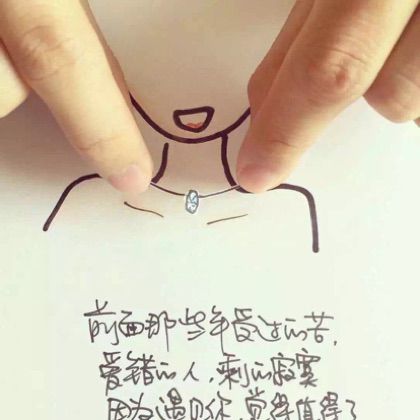 前面那些年受过的苦，
爱错的人，剩的寂寞
因为遇见你，觉得值得了